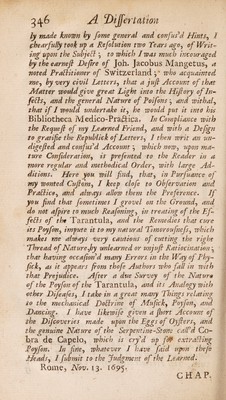 346 A Dissertation
by made known by some general and confus'd Hints, I
chearfully took up a Resolution two Years ago, of Writ-
ing upon the Subject; to which I was much incouraged
by the earnest Desire of Joh. Jacobus Mangetus, a
noted Practitioner of Switzerland; who acquainted
me, by very civil Letters, that a just Account of that
Matter would give great Light into the History of In-
sects, and the general Nature of Poisons; and withal,
that if I would undertake it, he would put it into his
Bibliotheca Medico-Practica. In Compliance with
the Request of my Learned Friend, and with a Design
to gratifie the Republick of Letters, I then writ an un-
digested and confus'd Account; which now, upon ma-
ture Consideration, is presented to the Reader in a
more regular and methodical Order, with large Ad-
ditions. Here you will find, that, in Pursuance of
my wonted Custom, I keep close to Observation and
Practice, and always allow them the Preference. If
you find that sometimes I grovel on the Ground, and
do not aspire to much Reasoning, in treating of the Ef-
fects of the Tarantula, and the Remedies that cure
its Poyson, impute it to my natural Timorousness, which
makes me always very cautious of cutting the right
Thread of Nature, by unlearned or unjust Ratiocination;
that having occasion'd many Errors in the Way of Phy-
sick, as it appears from those Authors who fall in with
that Prejudice. After a due Survey of the Nature
of the Poyson of the Tarantula, and its Analogy with
other Diseases, I take in a great many Things relating
to the mechanical Doctrine of Musick, Poyson, and
Dancing. I have likewise given a short Account of
the Discoveries made upon the Eggs of Oysters, and
the genuine Nature of the Serpentine-Stone call'd Co-
bra de Capelo, which is cry'd up for extracting
Poyson. In fine, whatever I have said upon these
Heads, I submit to the Judgment of the Learned.
Rome, Nov. 13. 1695.
CHAP.